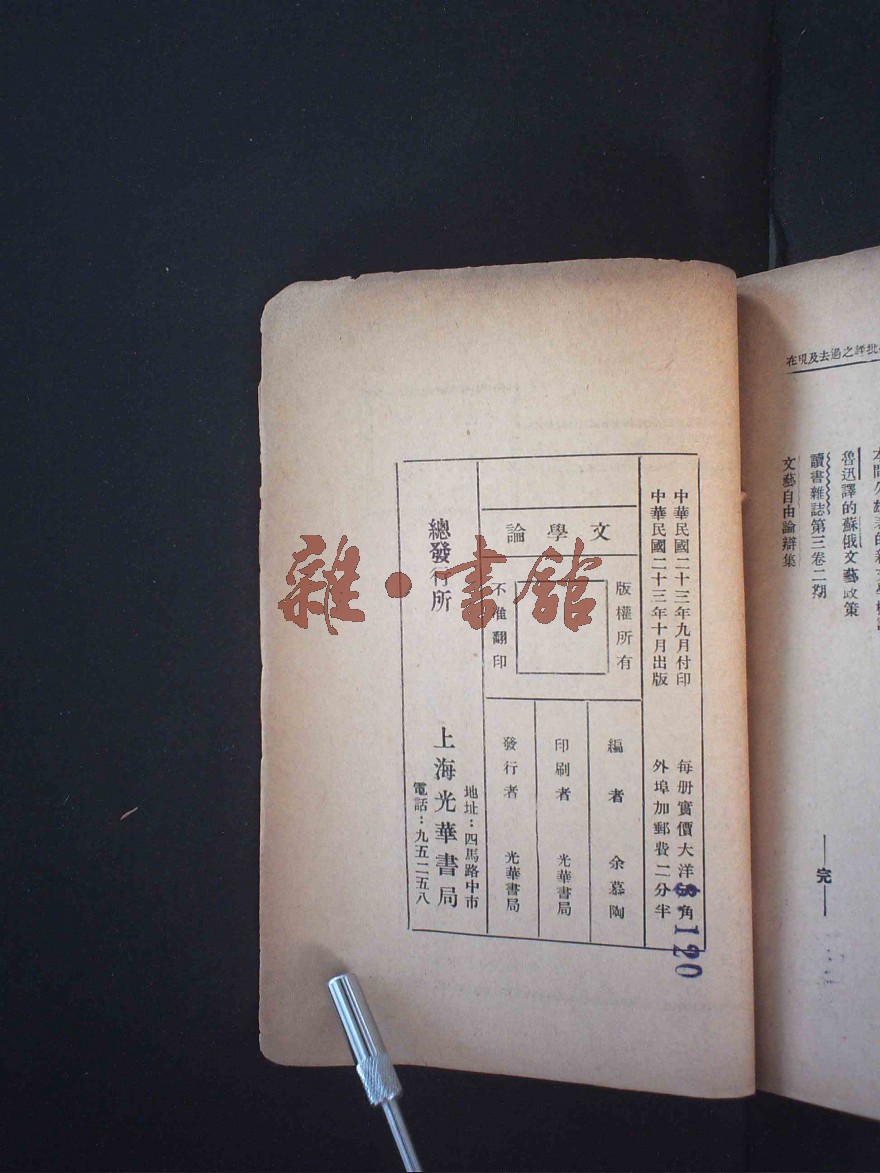 批評之過去及現在
魯迅譯的蘇俄文藝政策
讀書雜誌第三卷二期
文藝自由論辯集
——完——
中華民國二十三年九月付印
中華民國二十三年十月出版
每册實價大洋 角
外埠加郵費二分半
$120
文學論
版權所有
不准翻印
編者 余慕陶
印刷者 光華書局
發行者 光華書局
總發行所
上海光華書局
地址：四馬路中市
電話：九五二五八
雜·書館